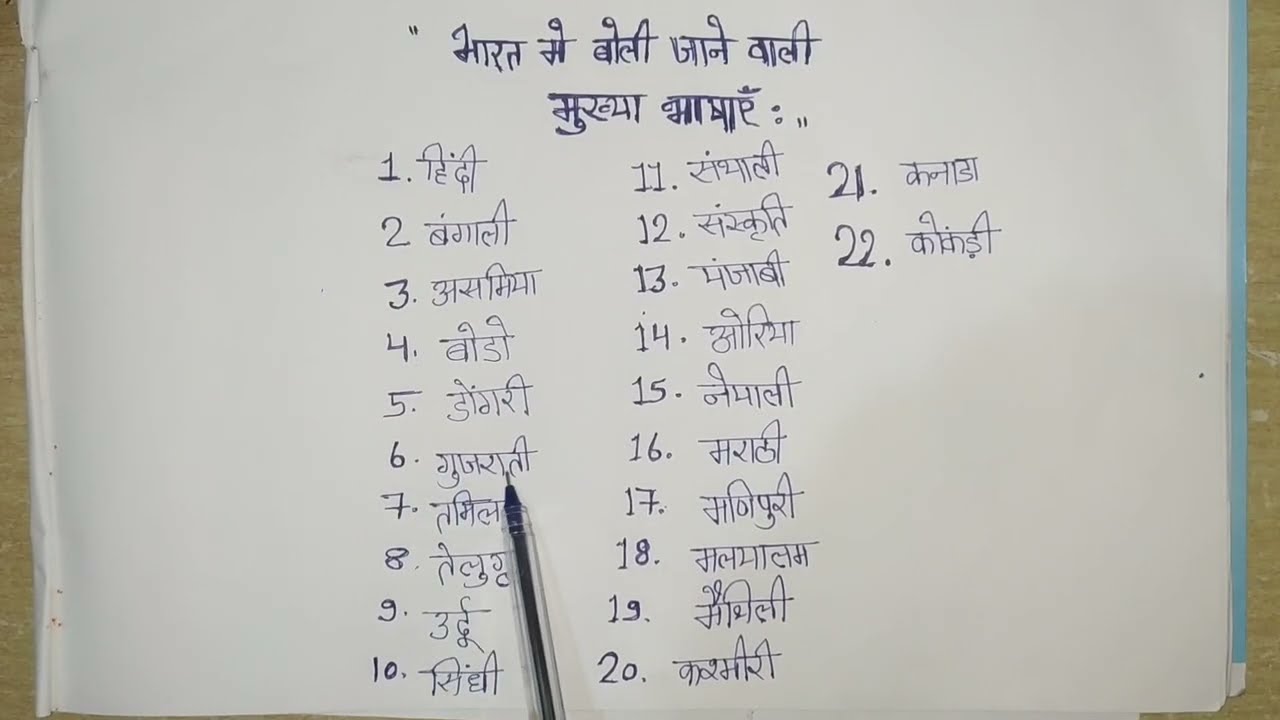 " भारत मे बोली जाने वाली
मुख्या भाषाएँ : "
1. हिंदी
2 बंगाली
3. असमिया
4. बोडो
5. डोंगरी
6. गुजराती
7. तमिल
8. तेलुगू
9. उर्दू
10. सिंधी
11. संथाली
12. संस्कृति
13. पंजाबी
14. ओरिया
15. नेपाली
16. मराठी
17. मणिपुरी
18. मलयालम
19. मैथिली
20. कश्मीरी
21. कनाडा
22. कोकंड़ी